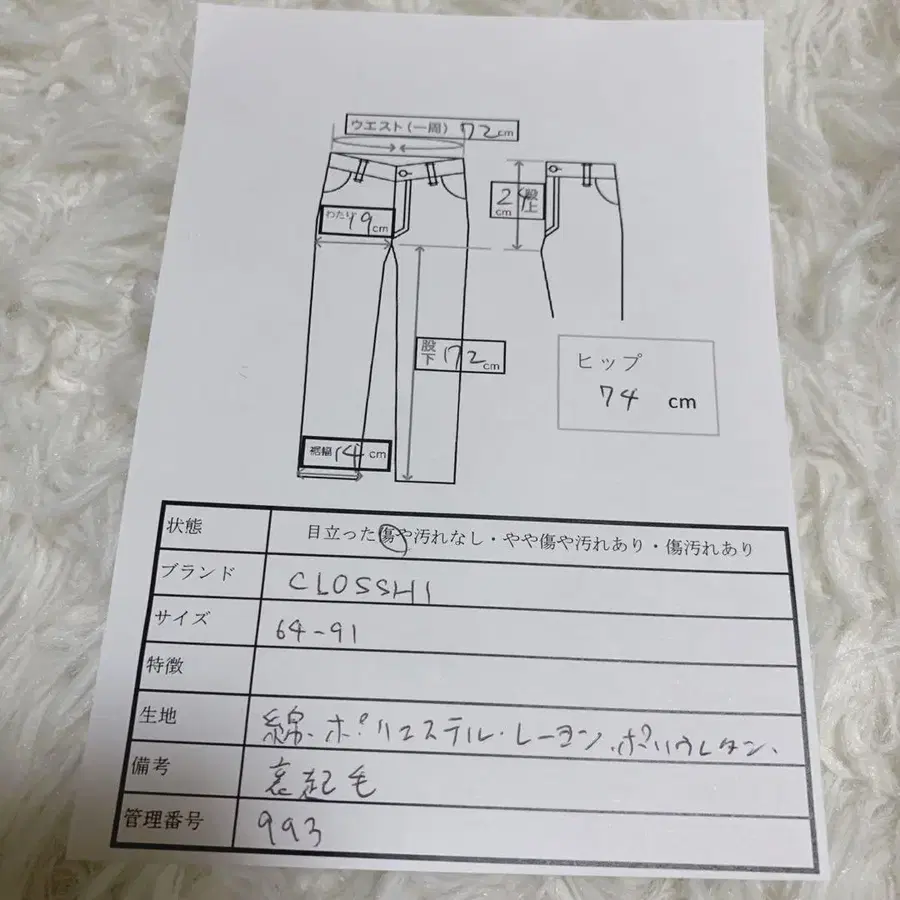 ウエスト(一周) 72cm
わたり 19cm
24cm 股上
股下 72cm
ヒップ
74 cm
裾幅 14cm
状態 目立った傷や汚れなし・やや傷や汚れあり・傷汚れあり
ブランド CLOSSHI
サイズ 64-91
特徴
生地 綿、ポリエステル・レーヨン、ポリウレタン、
備考 裏起毛
管理番号 993